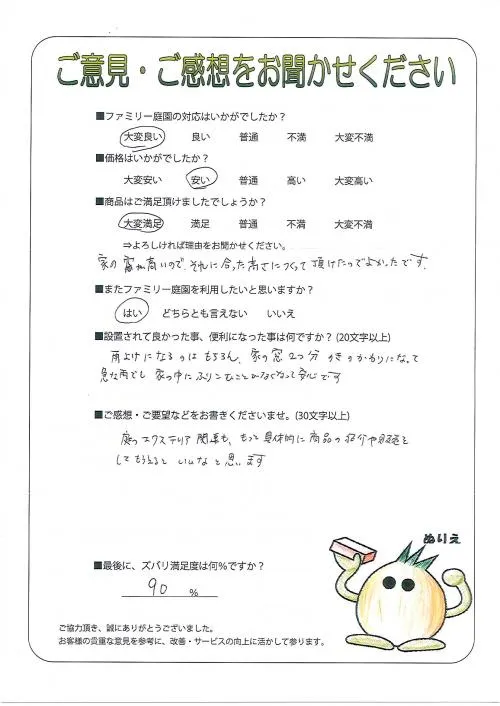 ご意見・ご感想をお聞かせください
■ファミリー庭園の対応はいかがでしたか?
大変良い 良い 普通 不満 大変不満
■価格はいかがでしたか?
大変安い 安い 普通 高い 大変高い
■商品はご満足頂けましたでしょうか?
大変満足 満足 普通 不満 大変不満
⇒よろしければ理由をお聞かせください。
家の窓が高いので、それに合った高さにつくって頂けたのでよかったです。
■またファミリー庭園を利用したいと思いますか?
はい どちらとも言えない いいえ
■設置されて良かった事、便利になった事は何ですか? (20文字以上)
雨よけになるのはもちろん、家の窓2つ分 かかりになって
急な雨でも 家の中にふりこむことがなくなって安心です
■ご感想・ご要望などをお書きくださいませ。(30文字以上)
庭のエクステリア関係も、もっと具体的に商品の紹介や を
してもらえると いいなと思います
■最後に、ズバリ満足度は何%ですか?
90 %
ぬりえ
ご協力頂き、誠にありがとうございました。
お客様の貴重な意見を参考に、改善・サービスの向上に活かして参ります。